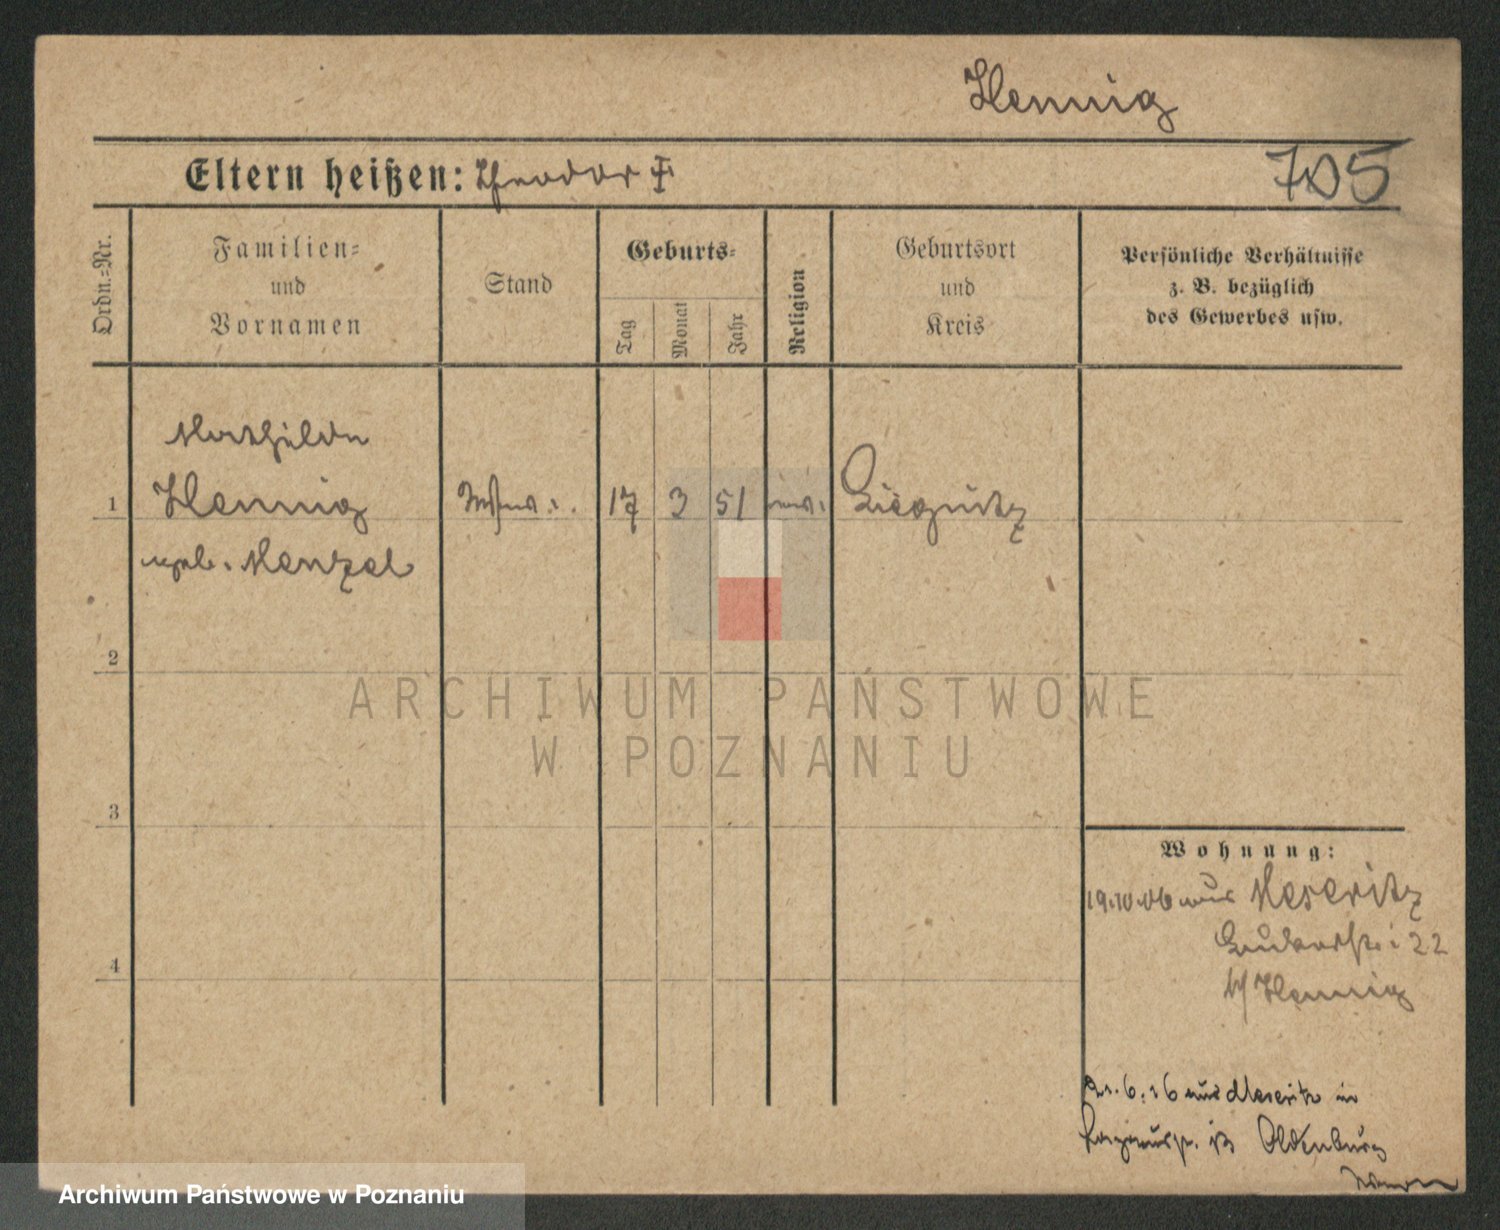 Hennig
Eltern heißen: Theodor †
705
Ordn.-Nr.
Familien-
und
Vornamen
Stand
Geburts-
Tag
Monat
Jahr
Religion
Geburtsort
und
Kreis
Persönliche Verhältnisse
z. B. bezüglich
des Gewerbes usw.
Mathilde
1 Hennig 17 3 51 Liegnitz
geb. Menzel
2
ARCHIWUM PAŃSTWOWE
W POZNANIU
3
Wohnung:
19.10.06 aus Meseritz
22
b/ Hennig
4
aus Meseritz in
Oldenburg
Archiwum Państwowe w Poznaniu